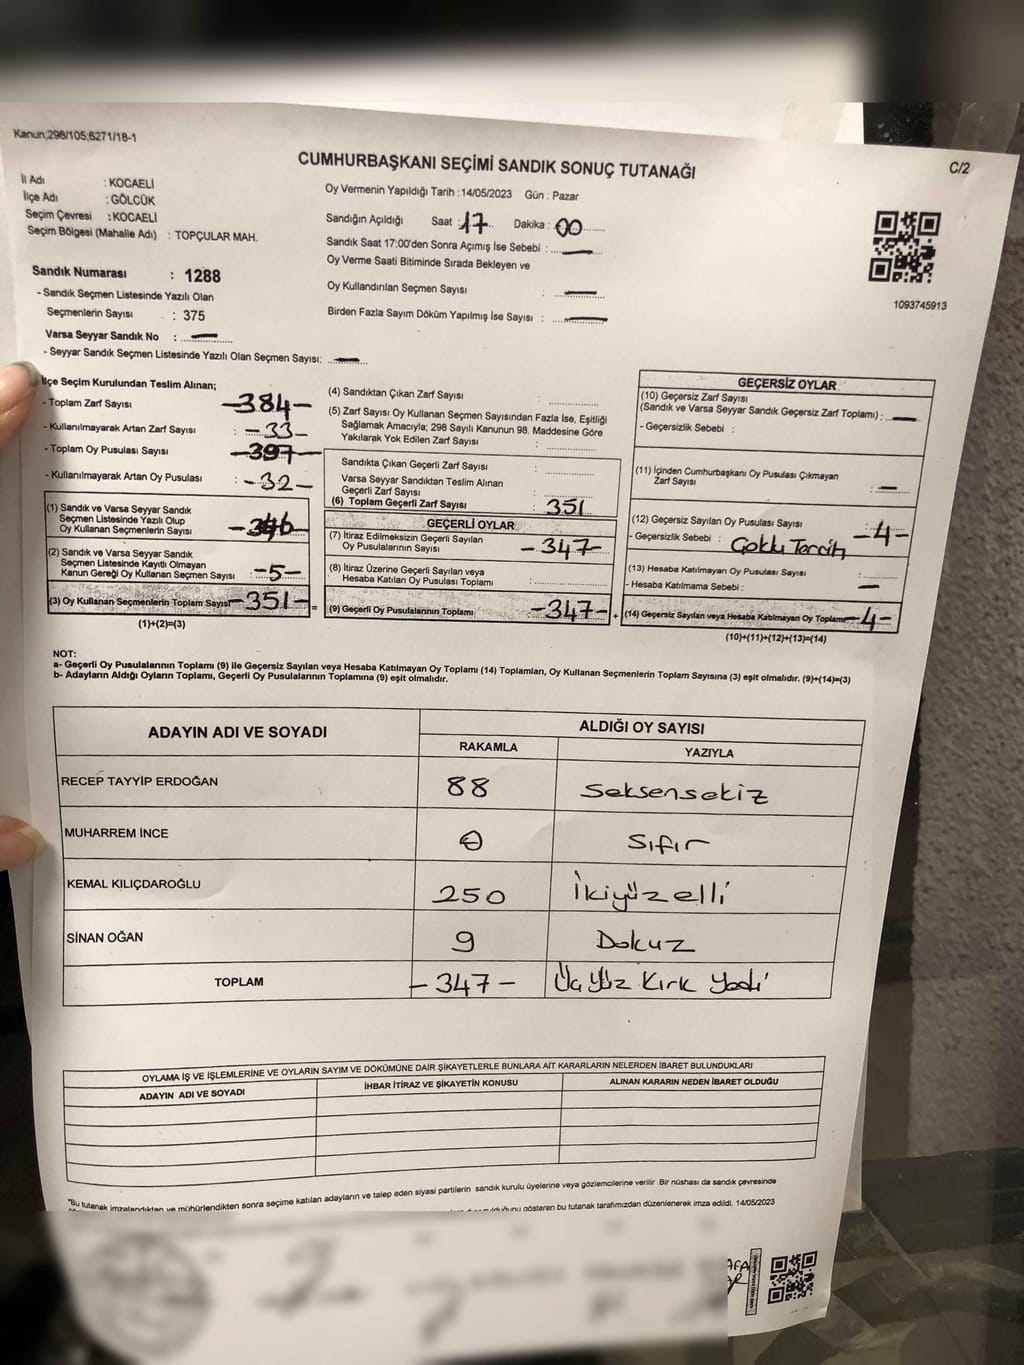 Kanun;298/105;6271/18-1
CUMHURBAŞKANI SEÇİMİ SANDIK SONUÇ TUTANAĞI
C/2
İl Adı : KOCAELİ
İlçe Adı : GÖLCÜK
Seçim Çevresi : KOCAELİ
Seçim Bölgesi (Mahalle Adı) : TOPÇULAR MAH.
Oy Vermenin Yapıldığı Tarih : 14/05/2023 Gün : Pazar
Sandığın Açıldığı Saat : 17 Dakika : 00
Sandık Saat 17:00'den Sonra Açımış İse Sebebi : —
Oy Verme Saati Bitiminde Sırada Bekleyen ve
Oy Kullandırılan Seçmen Sayısı : —
Birden Fazla Sayım Döküm Yapılmış İse Sayısı : —
1093745913
Sandık Numarası : 1288
- Sandık Seçmen Listesinde Yazılı Olan
Seçmenlerin Sayısı : 375
Varsa Seyyar Sandık No : —
- Seyyar Sandık Seçmen Listesinde Yazılı Olan Seçmen Sayısı: —
İlçe Seçim Kurulundan Teslim Alınan;
- Toplam Zarf Sayısı -384-
- Kullanılmayarak Artan Zarf Sayısı : -33-
- Toplam Oy Pusulası Sayısı -397-
- Kullanılmayarak Artan Oy Pusulası : -32-
(1) Sandık ve Varsa Seyyar Sandık
Seçmen Listesinde Yazılı Olup
Oy Kullanan Seçmenlerin Sayısı -346-
(2) Sandık ve Varsa Seyyar Sandık
Seçmen Listesinde Kayıtlı Olmayan
Kanun Gereği Oy Kullanan Seçmen Sayısı -5-
(3) Oy Kullanan Seçmenlerin Toplam Sayısı -351- =
(1)+(2)=(3)
(4) Sandıktan Çıkan Zarf Sayısı :
(5) Zarf Sayısı Oy Kullanan Seçmen Sayısından Fazla İse, Eşitliği
Sağlamak Amacıyla; 298 Sayılı Kanunun 98. Maddesine Göre
Yakılarak Yok Edilen Zarf Sayısı :
Sandıkta Çıkan Geçerli Zarf Sayısı :
Varsa Seyyar Sandıktan Teslim Alınan
Geçerli Zarf Sayısı :
(6) Toplam Geçerli Zarf Sayısı 351
GEÇERLİ OYLAR
(7) İtiraz Edilmeksizin Geçerli Sayılan
Oy Pusulalarının Sayısı -347-
(8) İtiraz Üzerine Geçerli Sayılan veya
Hesaba Katılan Oy Pusulası Toplamı
(9) Geçerli Oy Pusulalarının Toplamı -347- +
GEÇERSİZ OYLAR
(10) Geçersiz Zarf Sayısı
(Sandık ve Varsa Seyyar Sandık Geçersiz Zarf Toplamı) : —
- Geçersizlik Sebebi :
(11) İçinden Cumhurbaşkanı Oy Pusulası Çıkmayan
Zarf Sayısı : —
(12) Geçersiz Sayılan Oy Pusulası Sayısı : -4-
- Geçersizlik Sebebi : Çoklu Tercih
(13) Hesaba Katılmayan Oy Pusulası Sayısı :
- Hesaba Katılmama Sebebi : —
(14) Geçersiz Sayılan veya Hesaba Katılmayan Oy Toplamı -4-
(10)+(11)+(12)+(13)=(14)
NOT:
a- Geçerli Oy Pusulalarının Toplamı (9) ile Geçersiz Sayılan veya Hesaba Katılmayan Oy Toplamı (14) Toplamları, Oy Kullanan Seçmenlerin Toplam Sayısına (3) eşit olmalıdır. (9)+(14)=(3)
b- Adayların Aldığı Oyların Toplamı, Geçerli Oy Pusulalarının Toplamına (9) eşit olmalıdır.
ADAYIN ADI VE SOYADI ALDIĞI OY SAYISI
RAKAMLA YAZIYLA
RECEP TAYYİP ERDOĞAN 88 Seksensekiz
MUHARREM İNCE 0 Sıfır
KEMAL KILIÇDAROĞLU 250 İkiyüzelli
SİNAN OĞAN 9 Dokuz
TOPLAM -347- Üç Yüz Kırk Yedi
OYLAMA İŞ VE İŞLEMLERİNE VE OYLARIN SAYIM VE DÖKÜMÜNE DAİR ŞİKAYETLERLE BUNLARA AİT KARARLARIN NELERDEN İBARET BULUNDUKLARI
ADAYIN ADI VE SOYADI İHBAR İTİRAZ VE ŞİKAYETİN KONUSU ALINAN KARARIN NEDEN İBARET OLDUĞU
"Bu tutanak imzalandıktan ve mühürlendikten sonra seçime katılan adayların ve talep eden siyasi partilerin sandık kurulu üyelerine veya gözlemcilerine verilir. Bir nüshası da sandık çevresinde
gösteren bu tutanak tarafımızdan düzenlenerek imza edildi. 14/05/2023